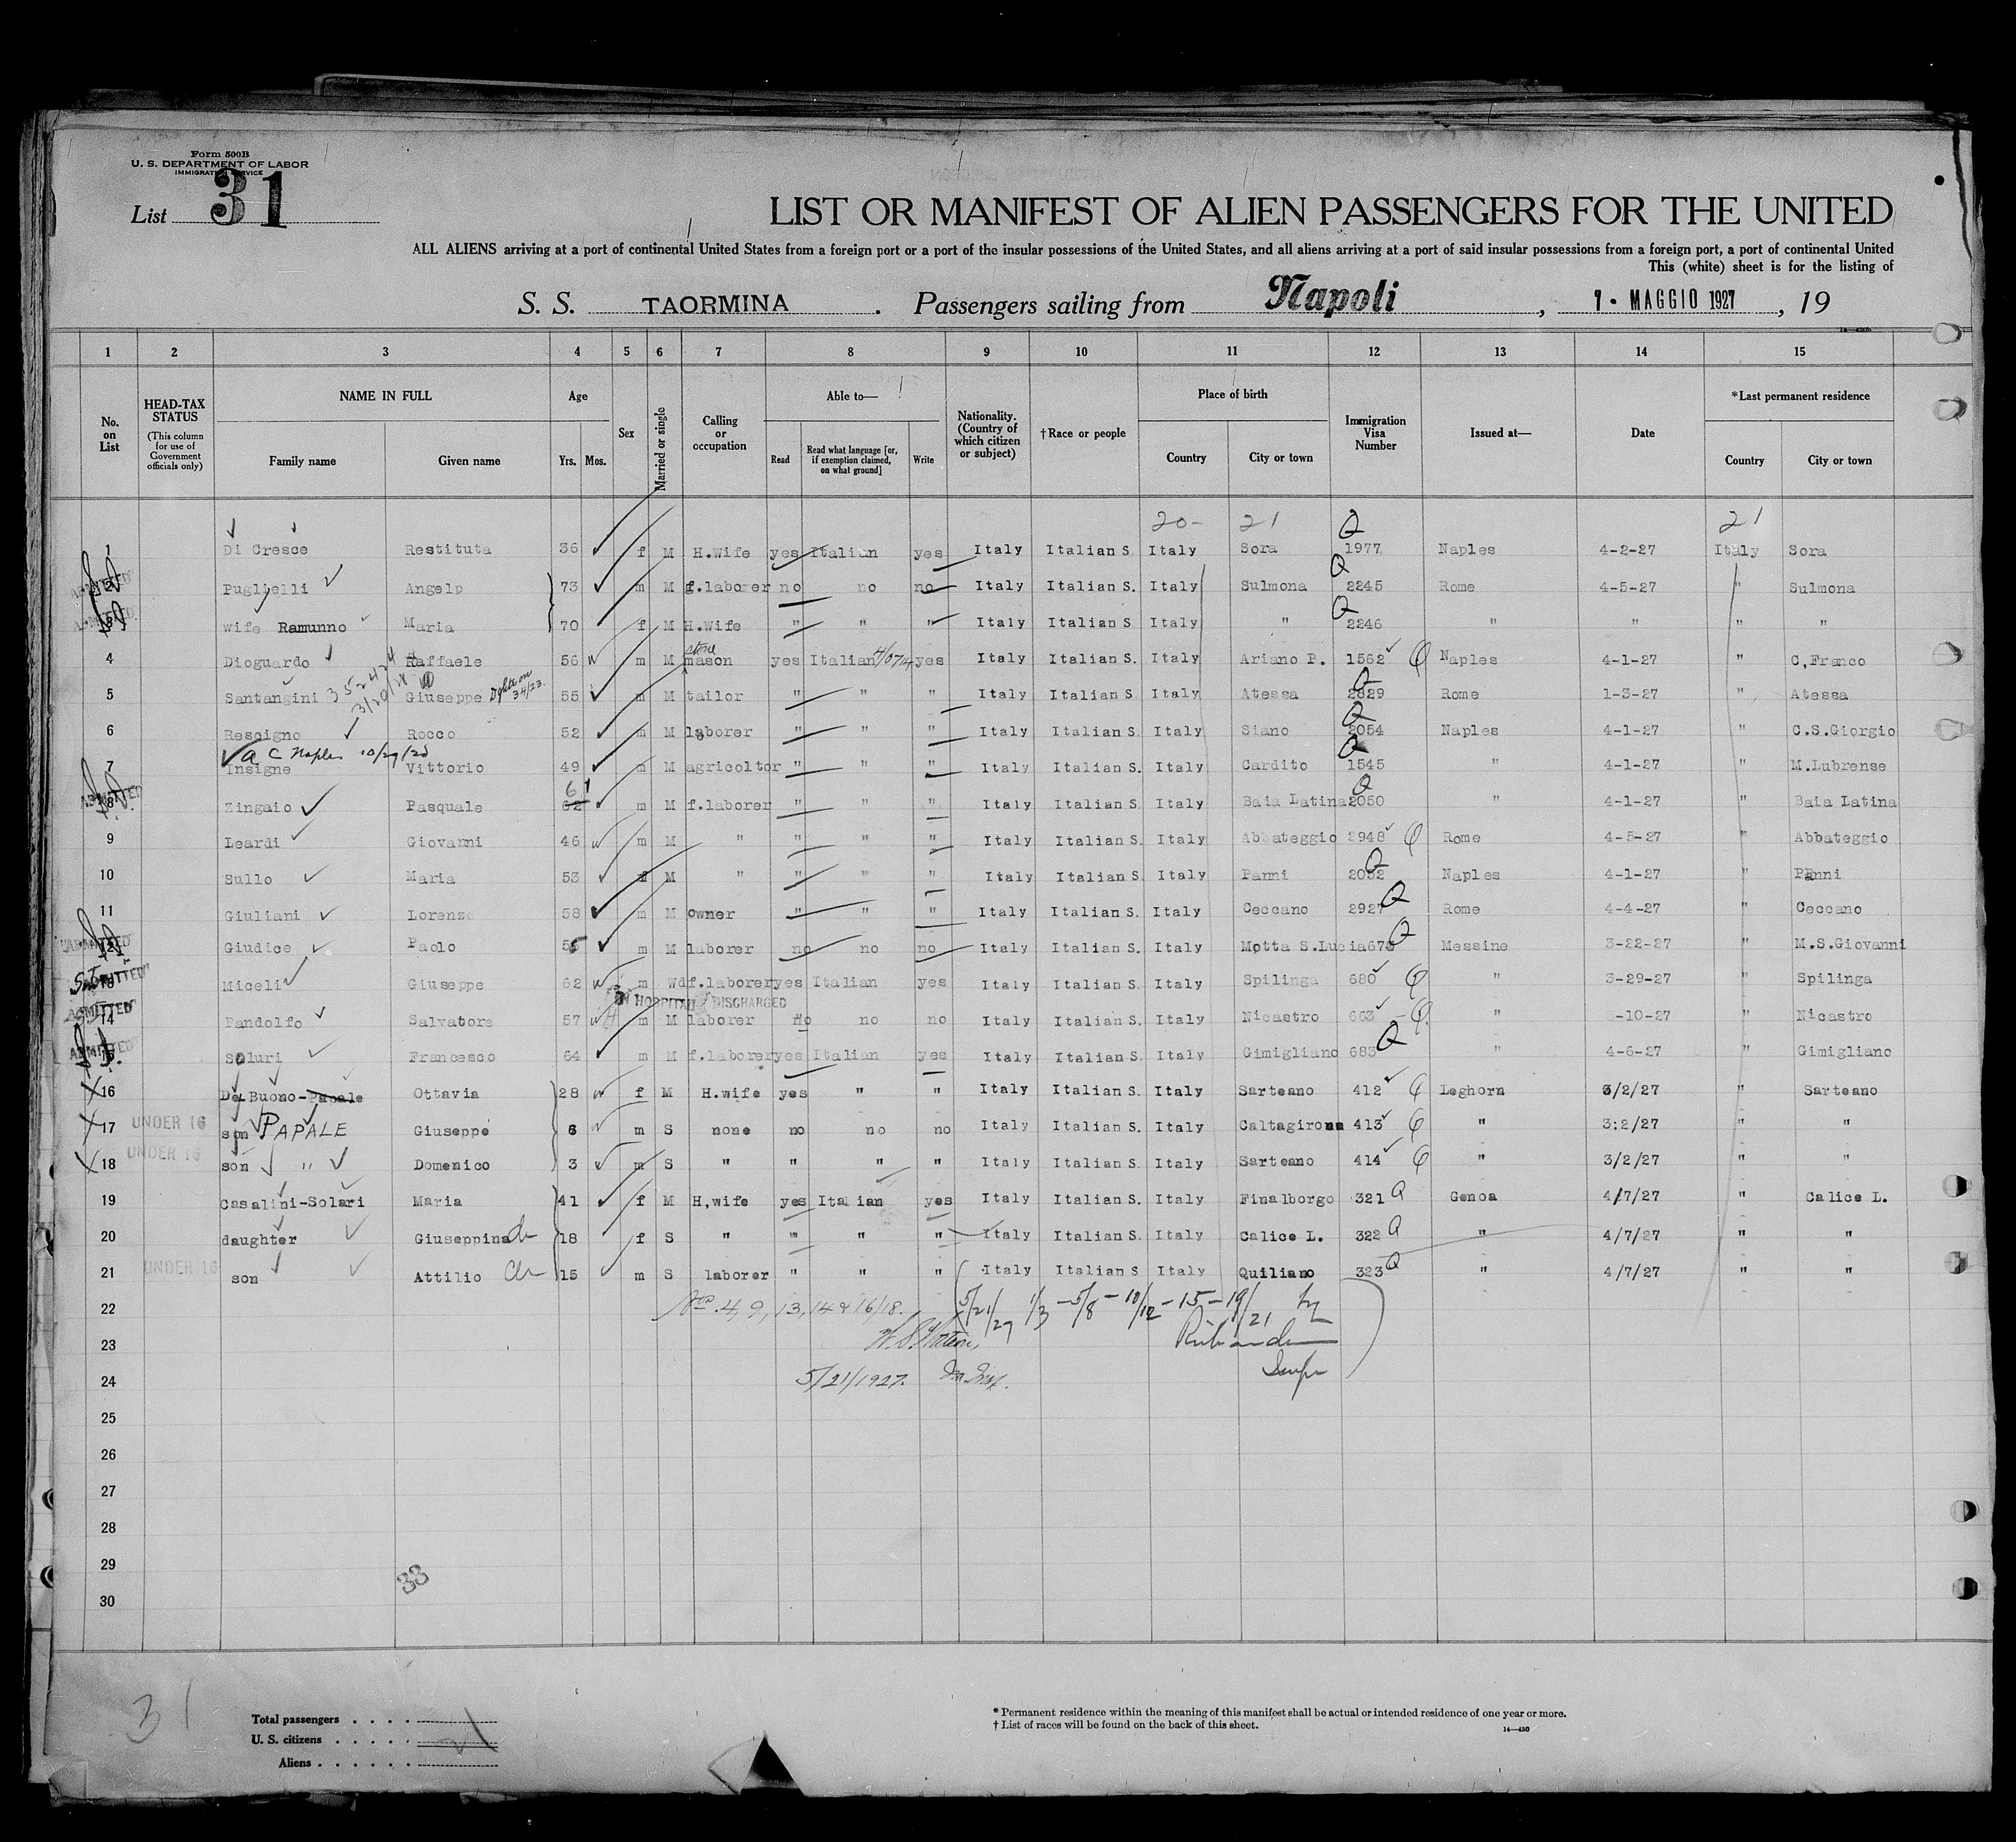 Form 500B
U. S. DEPARTMENT OF LABOR
IMMIGRATION SERVICE
List 31
LIST OR MANIFEST OF ALIEN PASSENGERS FOR THE UNITED
ALL ALIENS arriving at a port of continental United States from a foreign port or a port of the insular possessions of the United States, and all aliens arriving at a port of said insular possessions from a foreign port, a port of continental United
This (white) sheet is for the listing of
S. S. TAORMINA . Passengers sailing from Napoli , 7 - MAGGIO 1927 , 19
1 2 3 4 5 6 7 8 9 10 11 12 13 14 15
No. on List
HEAD-TAX STATUS (This column for use of Government officials only)
NAME IN FULL
Family name Given name
Age
Yrs. Mos.
Sex
Married or single
Calling or occupation
Able to—
Read Read what language [or, if exemption claimed, on what ground] Write
Nationality. (Country of which citizen or subject)
†Race or people
Place of birth
Country City or town
Immigration Visa Number
Issued at—
Date
*Last permanent residence
Country City or town
20- 21 21
1 Di Cresce Restituta 36 f M H.Wife yes Italian yes Italy Italian S. Italy Sora 1977 Naples 4-2-27 Italy Sora
2 Puglielli Angelp 73 m M f.laborer no no no Italy Italian S. Italy Sulmona 2245 Rome 4-5-27 " Sulmona
3 wife Ramunno Maria 70 f M H.Wife " " " Italy Italian S. Italy " 2246 " " " "
4 Dioguardo Raffaele 56 m M stone mason yes Italian yes Italy Italian S. Italy Ariano P. 1562 Naples 4-1-27 " C,Franco
5 Santangini Giuseppe 55 m M tailor " " " Italy Italian S. Italy Atessa 2829 Rome 1-3-27 " Atessa
6 Rescigno Rocco 52 m M laborer " " " Italy Italian S. Italy Siano 2054 Naples 4-1-27 " C.S.Giorgio
a c Naples 10/29/25
7 Insigne Vittorio 49 m M agricoltor " " " Italy Italian S. Italy Cardito 1545 " 4-1-27 " M.Lubrense
8 Zingaio Pasquale 62 61 m M f.laborer " " " Italy Italian S. Italy Baia Latina 2050 " 4-1-27 " Baia Latina
9 Leardi Giovanni 46 m M " " " " Italy Italian S. Italy Abbateggio 2948 Rome 4-5-27 " Abbateggio
10 Sullo Maria 53 f M " " " " Italy Italian S. Italy Panni 2052 Naples 4-1-27 " Panni
11 Giuliani Lorenzo 58 m M owner " " " Italy Italian S. Italy Ceccano 2927 Rome 4-4-27 " Ceccano
12 Giudice Paolo 55 m M laborer no no no Italy Italian S. Italy Motta S.Lucia 678 Messine 3-22-27 " M.S.Giovanni
13 Miceli Giuseppe 62 m Wd f.laborer yes Italian yes Italy Italian S. Italy Spilinga 680 " 3-29-27 " Spilinga
IN HOSPITAL DISCHARGED
14 Pandolfo Salvatore 57 m M laborer no no no Italy Italian S. Italy Nicastro 663 " 3-10-27 " Nicastro
15 Soluri Francesco 64 m M f.laborer yes Italian yes Italy Italian S. Italy Gimigliano 683 " 4-6-27 " Gimigliano
16 Del Buono-Papale Ottavia 28 f M H.wife yes " " Italy Italian S. Italy Sarteano 412 Leghorn 3/2/27 " Sarteano
17 UNDER 16 son PAPALE Giuseppe 6 m S none no no no Italy Italian S. Italy Caltagirone 413 " 3:2/27 " "
18 UNDER 16 son " Domenico 3 m S " " " " Italy Italian S. Italy Sarteano 414 " 3/2/27 " "
19 Casalini-Solari Maria 41 f M H,wife yes Italian yes Italy Italian S. Italy Finalborgo 321 Genoa 4/7/27 " Calice L.
20 daughter Giuseppina 18 f S " " " " Italy Italian S. Italy Calice L. 322 " 4/7/27 " "
21 UNDER 16 son Attilio 15 m S laborer " " " Italy Italian S Italy Quiliano 323 " 4/7/27 " "
22 Nos. 4, 9, 13, 14 & 16/18. 5/21/27 1/3 - 5/8 - 10/12 - 15 - 19/21 by
23
24 5/21/1927. Im. Insp.
25
26
27
28
29
30
33
31
Total passengers . . . .
U. S. citizens . . . . .
Aliens . . . . . .
21
* Permanent residence within the meaning of this manifest shall be actual or intended residence of one year or more.
† List of races will be found on the back of this sheet.
14—430